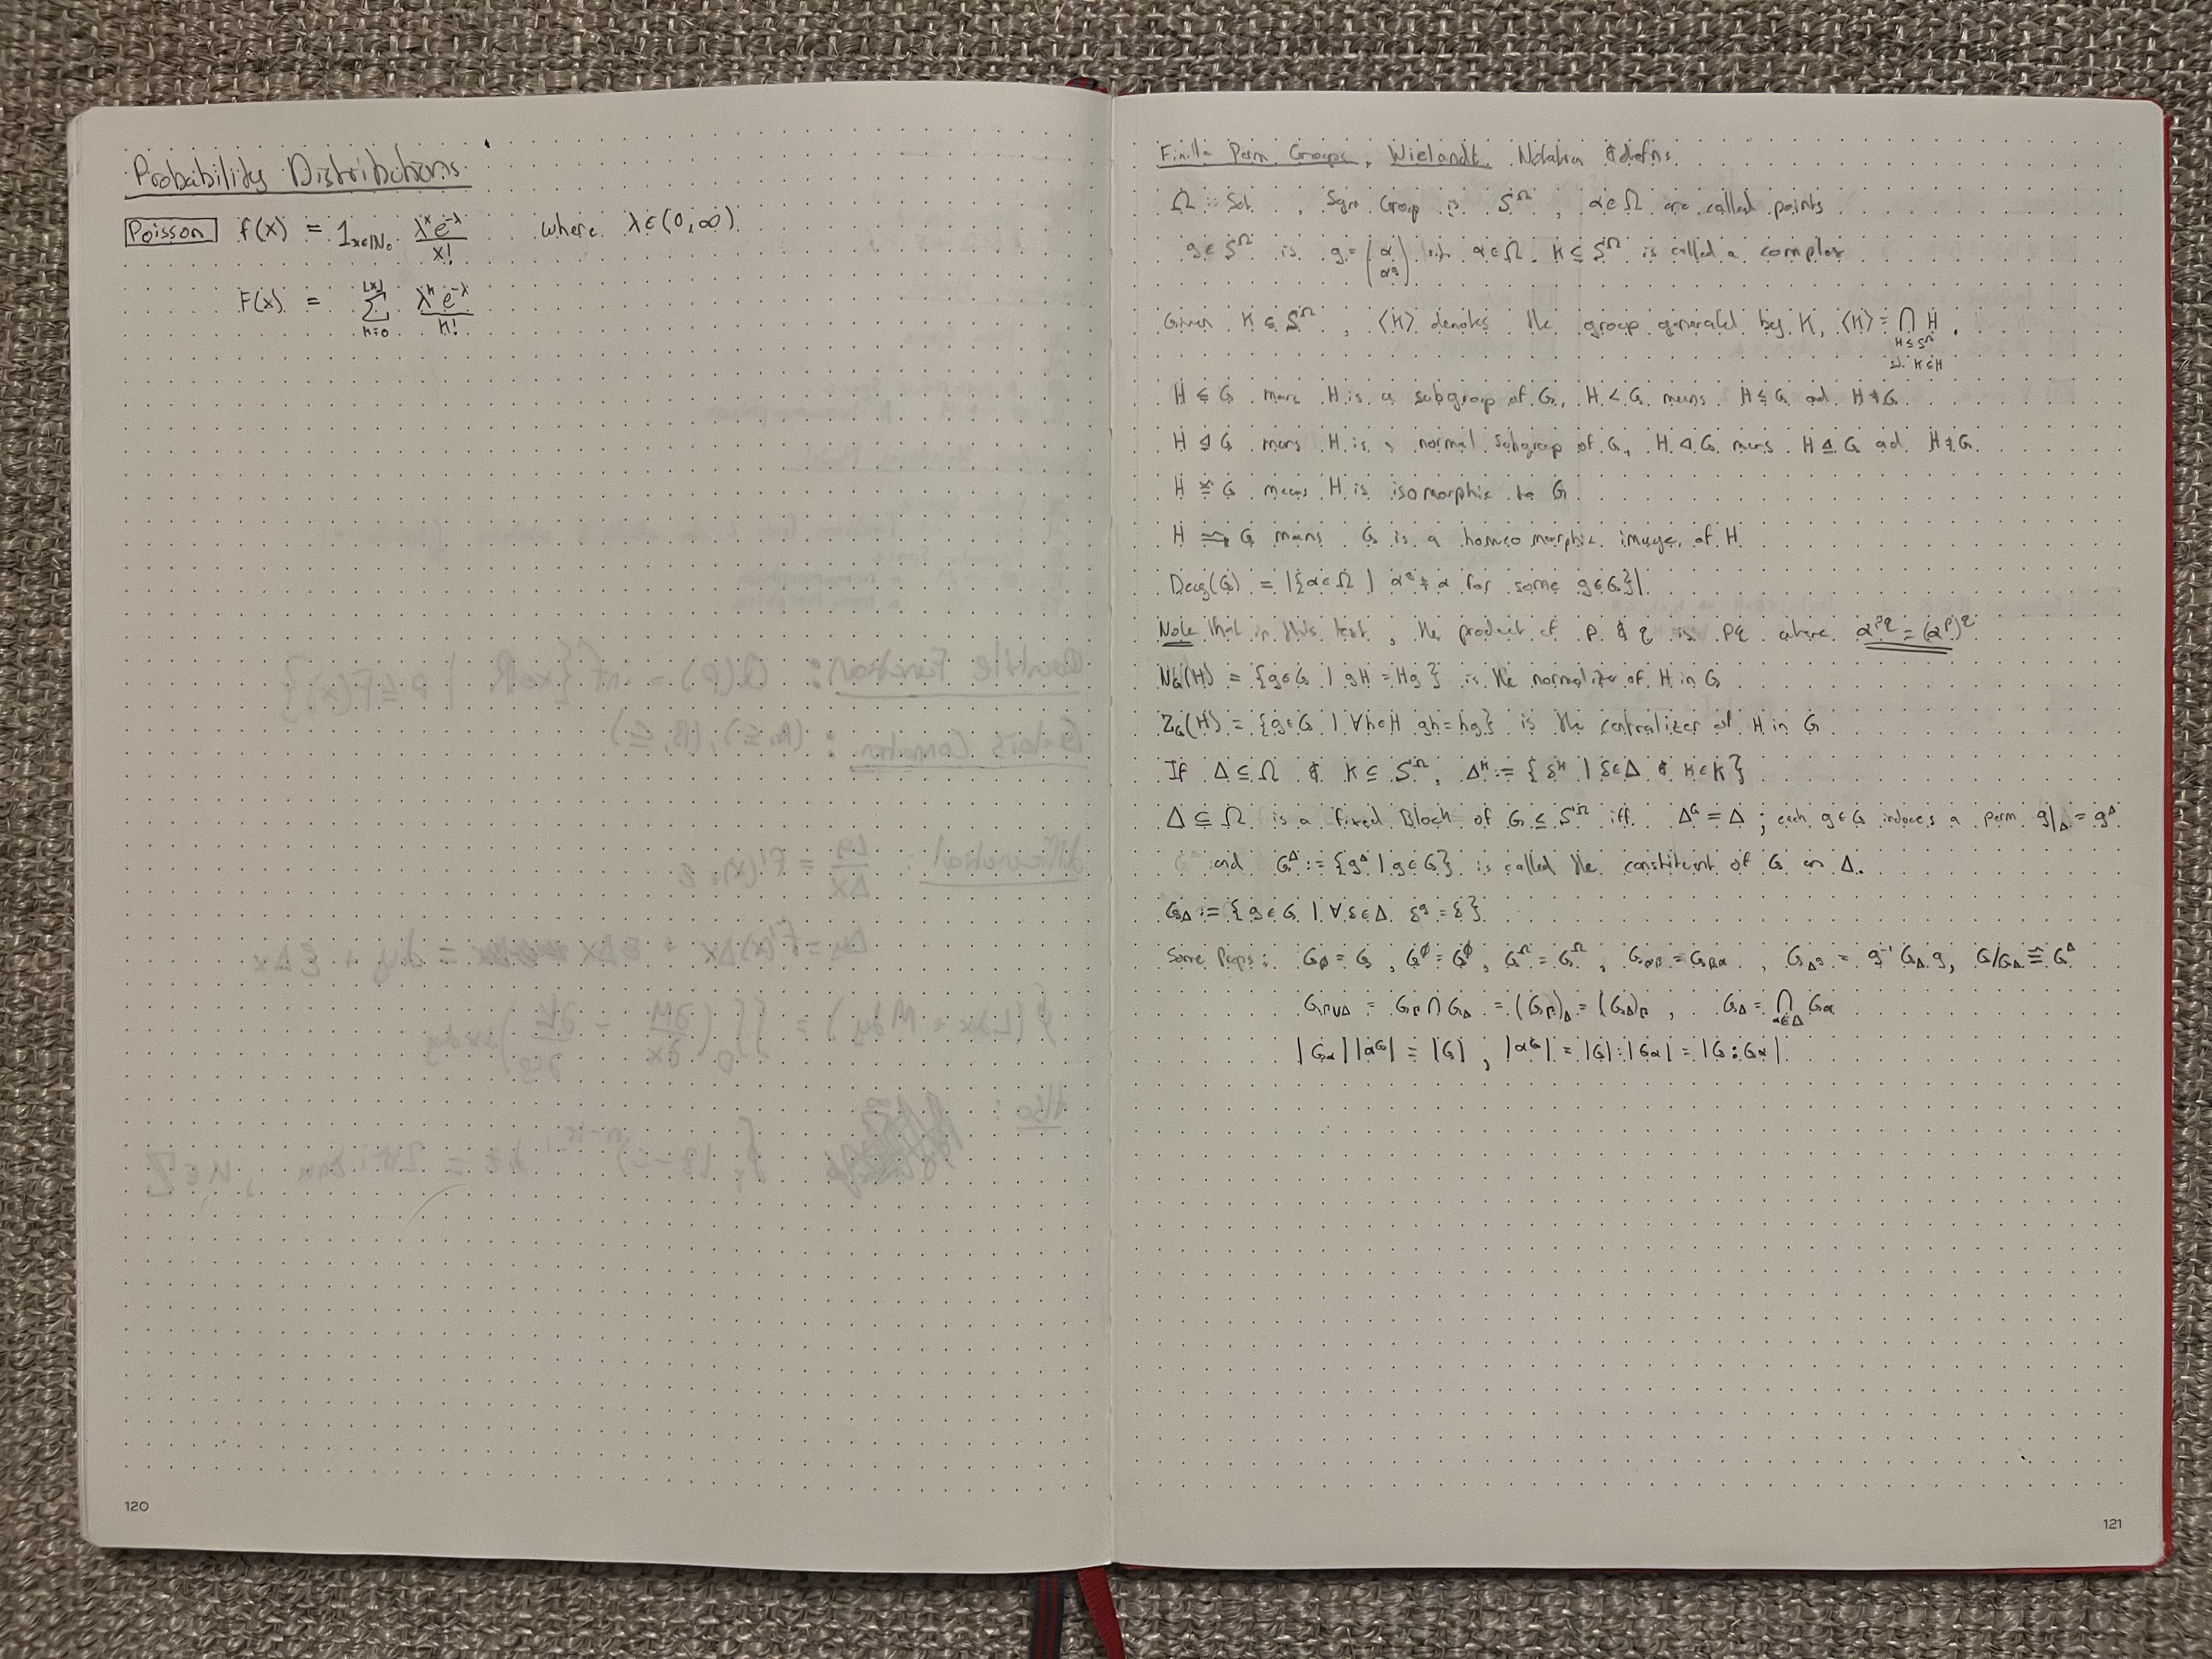 Probability Distributions
Poisson f(x) = 1_{x∈ℕ₀} λ^x e^{-λ} / x! where λ∈(0,∞)
F(x) = ∑_{k=0}^{⌊x⌋} λ^k e^{-λ} / k!
120
Finite Perm Groups, Wielandt Notation & defins
Ω is Set, Sym Group is S^Ω, α∈Ω are called points
g∈S^Ω is g = (α / α^g) with α∈Ω. K ≤ S^Ω is called a complex
Given K ≤ S^Ω, ⟨K⟩ denotes the group generated by K, ⟨K⟩ = ⋂_{H≤S^Ω, K⊆H} H.
H ≤ G means H is a subgroup of G, H < G means H ≤ G and H ≠ G
H ⊴ G means H is a normal subgroup of G, H ⊲ G means H ⊴ G and H ≠ G.
H ≅ G means H is isomorphic to G
H G means G is a homeomorphic image of H
Deg(G) = |{α∈Ω | α^g ≠ α for some g∈G}|
Note that in this text, the product of p & q is pq where α^{pq} = (α^p)^q
N_G(H) = {g∈G | gH = Hg} is the normalizer of H in G
Z_G(H) = {g∈G | ∀h∈H gh = hg} is the centralizer of H in G
If Δ ⊆ Ω & K ≤ S^Ω, Δ^K := {δ^k | δ∈Δ & k∈K}
Δ ⊆ Ω is a fixed Block of G ≤ S^Ω iff Δ^G = Δ; each g∈G induces a perm g|_Δ = g^Δ
and G^Δ := {g^Δ | g∈G} is called the constituent of G on Δ.
G_Δ := {g∈G | ∀δ∈Δ δ^g = δ}
Some Props: G_∅ = G, G^∅ = G^∅, G^Ω = G^Ω, G_{αβ} = G_{βα}, G_{Δ^g} = g^{-1} G_Δ g, G/G_Δ ≅ G^Δ
G_{Γ∪Δ} = G_Γ ∩ G_Δ = (G_Γ)_Δ = (G_Δ)_Γ, G_Δ = ⋂_{α∈Δ} G_α
|G_α| |α^G| = |G|, |α^G| = |G| : |G_α| = |G : G_α|
121